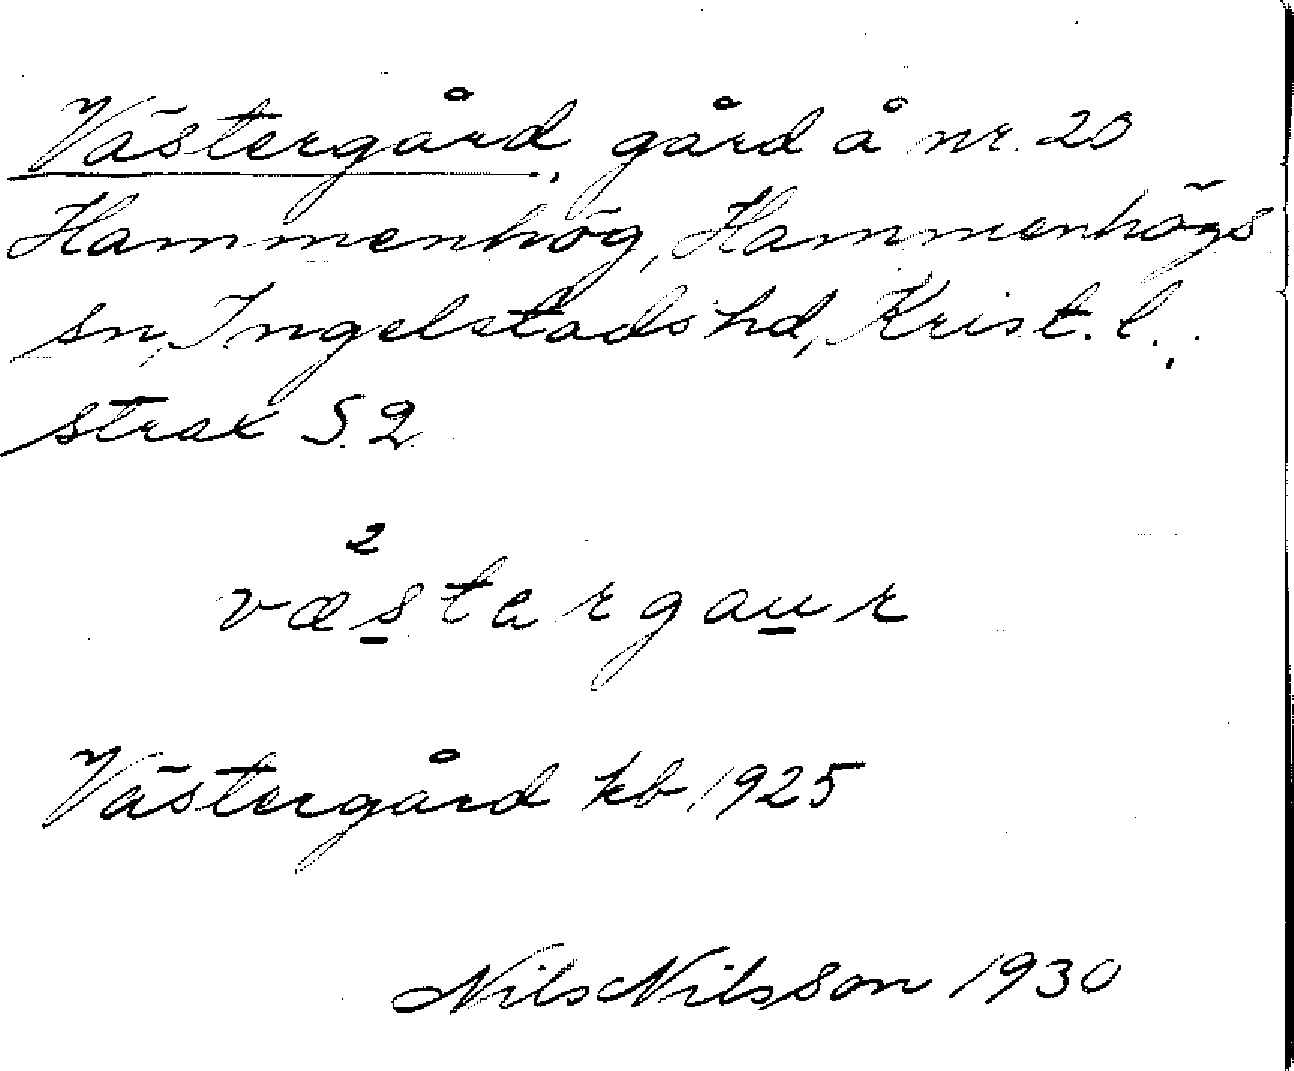 Västergård, gård å nr. 20
Hammenhög, Hammenhögs
sn, Ingelstads hd, Krist. l.,
strax S. 2.
2
væstargaur
Västergård kb. 1925
Nils Nilsson 1930